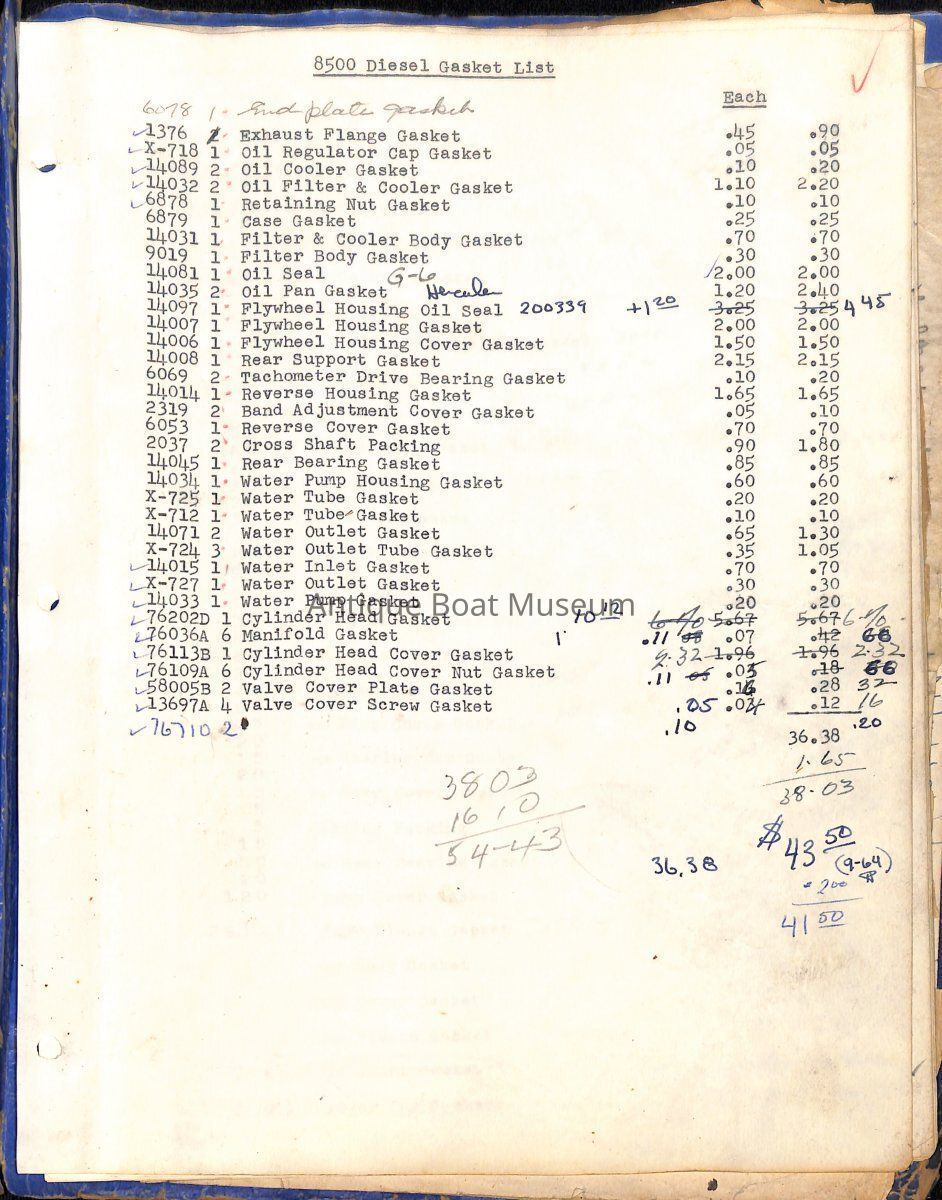 8500 Diesel Gasket List
Each
6078 1 End plate gasket
1376 Exhaust Flange Gasket .45 .90
X-718 1 Oil Regulator Cap Gasket .05 .05
14089 2 Oil Cooler Gasket .10 .20
14032 2 Oil Filter & Cooler Gasket 1.10 2.20
6878 1 Retaining Nut Gasket .10 .10
6879 1 Case Gasket .25 .25
14031 1 Filter & Cooler Body Gasket .70 .70
9019 1 Filter Body Gasket .30 .30
14081 1 Oil Seal G-6 2.00 2.00
14035 2 Oil Pan Gasket Hercules 1.20 2.40
14097 1 Flywheel Housing Oil Seal 200339 +1 20 3.25 3.25 4 45
14007 1 Flywheel Housing Gasket 2.00 2.00
14006 1 Flywheel Housing Cover Gasket 1.50 1.50
14008 1 Rear Support Gasket 2.15 2.15
6069 2 Tachometer Drive Bearing Gasket .10 .20
14014 1 Reverse Housing Gasket 1.65 1.65
2319 2 Band Adjustment Cover Gasket .05 .10
6053 1 Reverse Cover Gasket .70 .70
2037 2 Cross Shaft Packing .90 1.80
14045 1 Rear Bearing Gasket .85 .85
14034 1 Water Pump Housing Gasket .60 .60
X-725 1 Water Tube Gasket .20 .20
X-712 1 Water Tube Gasket .10 .10
14071 2 Water Outlet Gasket .65 1.30
X-724 3 Water Outlet Tube Gasket .35 1.05
14015 1 Water Inlet Gasket .70 .70
X-727 1 Water Outlet Gasket .30 .30
14033 1 Water Pump Gasket .20 .20
Antique Boat Museum
76202D 1 Cylinder Head Gasket 10 12 5.67 5.67
76036A 6 Manifold Gasket 1 .11 .07 .42 66
76113B 1 Cylinder Head Cover Gasket 2.32 1.96 1.96 2.32
76109A 6 Cylinder Head Cover Nut Gasket .11 .03 .18 66
58005B 2 Valve Cover Plate Gasket .28 32
13697A 4 Valve Cover Screw Gasket .05 .12 16
76710 2 .10 .20
36.38
1.65
38.03
3803
1610
54-43
36.38
$43 50
(9-64)
200
41 50